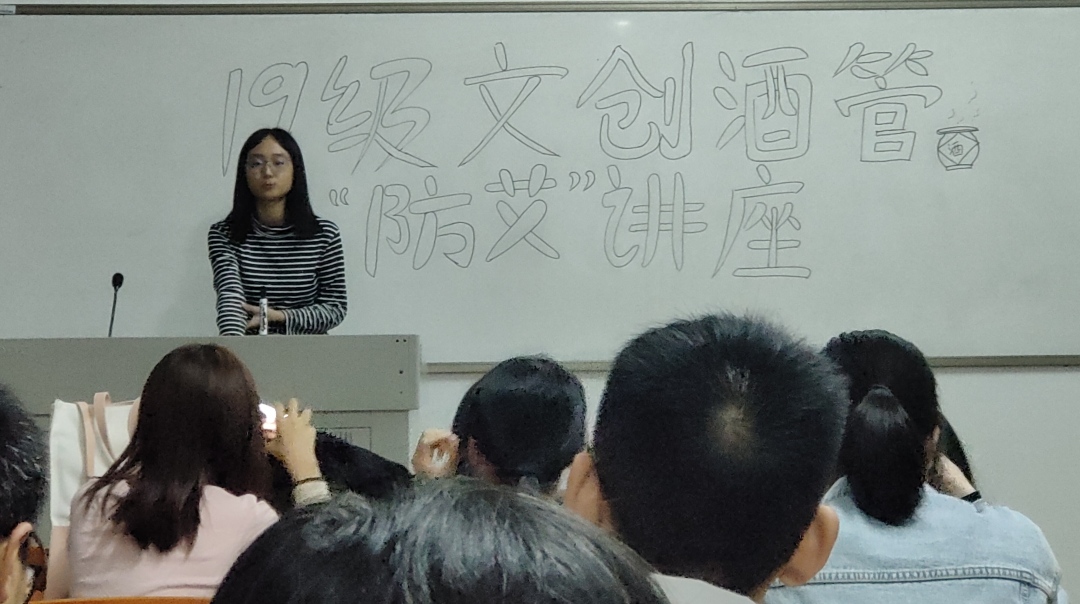 19级文创酒管
酒
“防艾”讲座